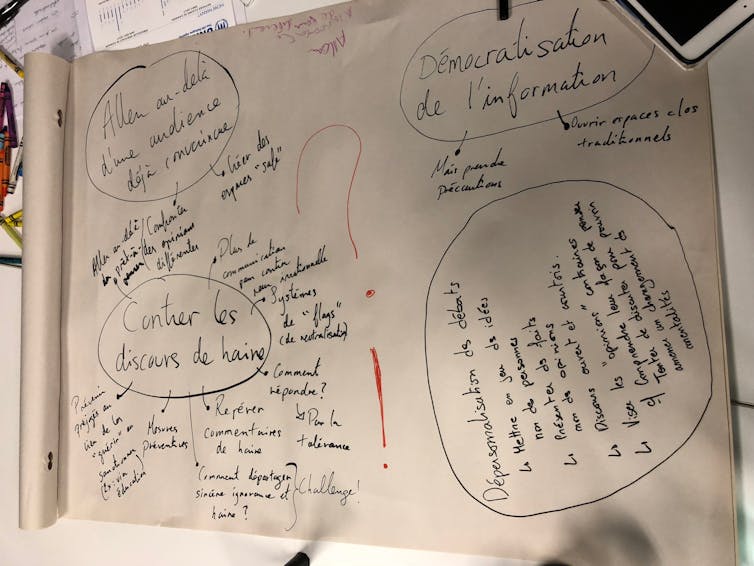 Aller au-delà
d'une audience
déjà convaincue
Créer des
espaces "safe"
Aller au-delà
du prêt-à-
penser
Confronter
des opinions
différentes
Démocratisation
de l'information
Mais prendre
précautions
Ouvrir espaces clos
traditionnels
Contrer les
discours de haine
Plan de
communication
pour contrer
Systèmes
de "flags"
(de neutralisation)
Comment
répondre?
↳ Par la
tolérance
Repérer
commentaires
de haine
Mesures
préventives
Prévenir
préjugés au
lieu de les
"guérir" ou
sanctionner
(Ex: via
éducation)
Comment départager
sincère ignorance et
haine?
Challenge!
?
!
Dépersonnalisation des débats
↳ Mettre en jeu des idées
non des personnes
↳ Présenter des faits
non des opinions
↳ Discours ouvert et courtois.
↳ Viser les "opinions contraires"
↳ Comprendre leur façon de penser
et discuter pour parvenir
↳ Tenter un changement